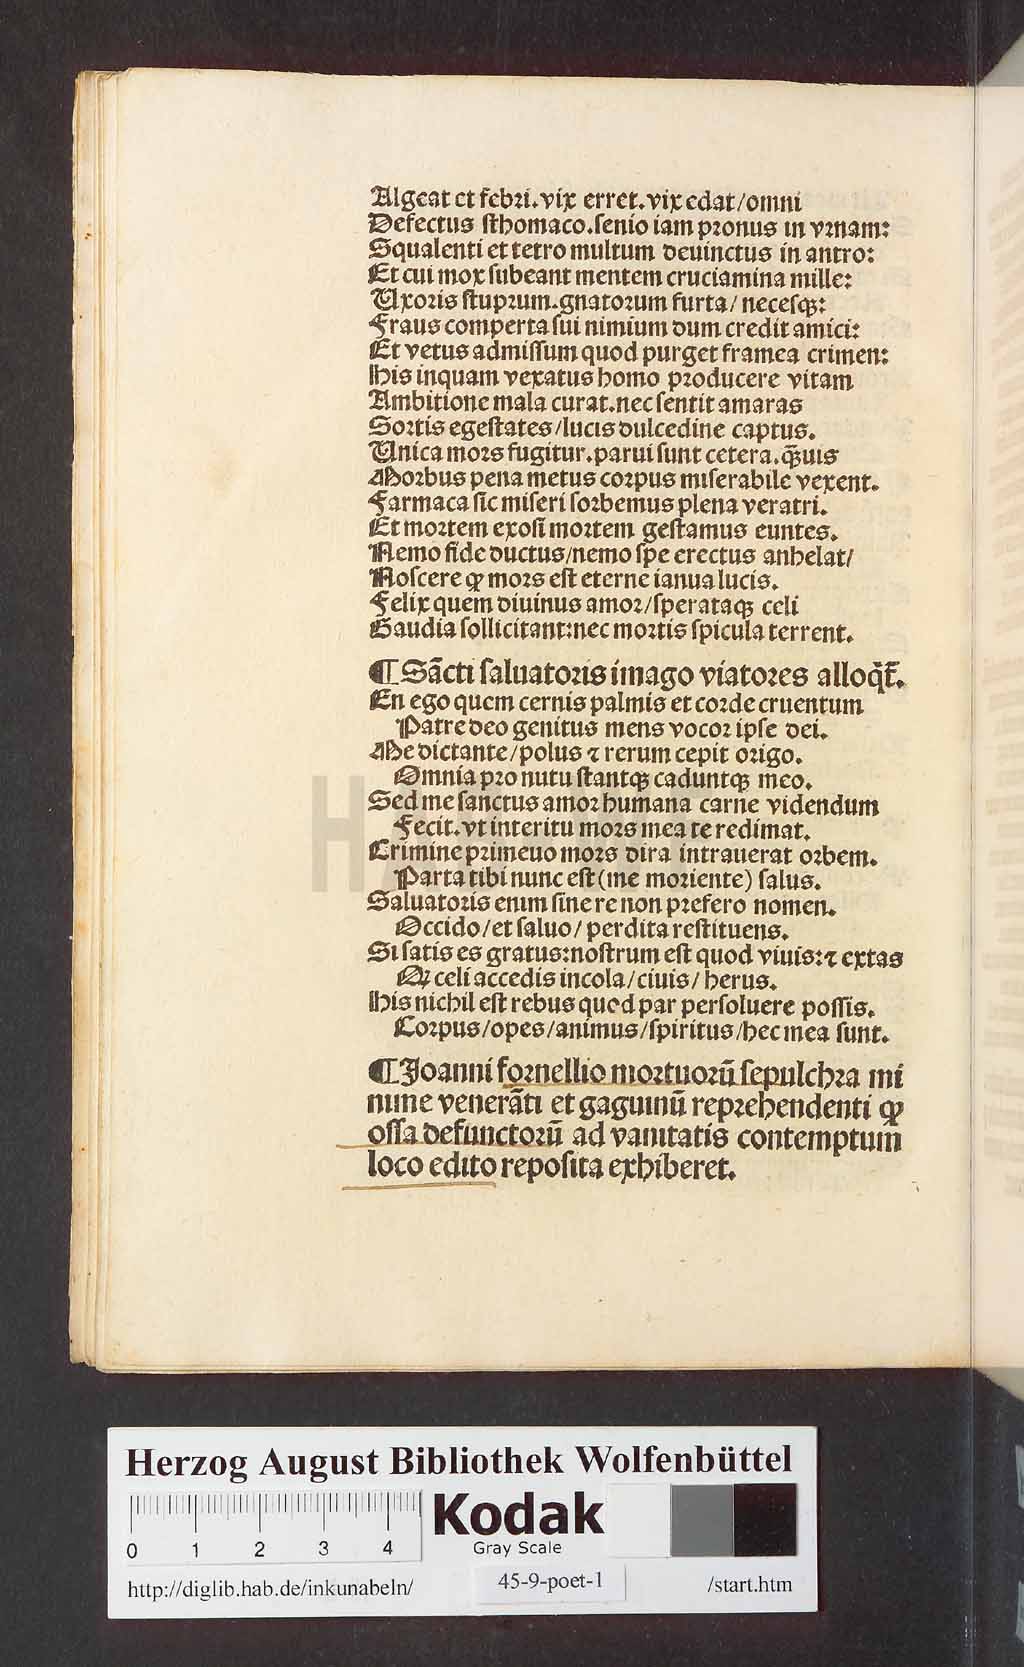 Algeat et febri. vix erret. vix edat/omni
Defectus sthomaco. senio iam pronus in vrnam:
Squalenti et tetro multum deuinctus in antro:
Et cui mox subeant mentem cruciamina mille:
Uxoris stuprum. gnatorum furta/ necesqꝫ:
Fraus comperta sui nimium dum credit amici:
Et vetus admissum quod purget framea crimen:
His inquam vexatus homo producere vitam
Ambitione mala curat. nec sentit amaras
Sortis egestates/lucis dulcedine captus.
Unica mors fugitur. parui sunt cetera. qᷓuis
Morbus pena metus corpus miserabile vexent.
Farmaca sic miseri sorbemus plena veratri.
Et mortem exosi mortem gestamus euntes.
Nemo fide ductus/nemo spe erectus anhelat/
Noscere ꝙ mors est eterne ianua lucis.
Felix quem diuinus amor/sperataqꝫ celi
Gaudia sollicitant: nec mortis spicula terrent.
¶ Sācti saluatoris imago viatores alloq̄t̄.
En ego quem cernis palmis et corde cruentum
Patre deo genitus mens vocor ipse dei.
Me dictante/polus ⁊ rerum cepit origo.
Omnia pro nutu stantqꝫ caduntqꝫ meo.
Sed me sanctus amor humana carne videndum
Fecit. vt interitu mors mea te redimat.
Crimine primeuo mors dira intrauerat orbem.
Parta tibi nunc est (me moriente) salus.
Saluatoris enim sine re non prefero nomen.
Occido/et saluo/ perdita restituens.
Si satis es gratus: nostrum est quod viuis: ⁊ extas
Ꝙ celi accedis incola/ciuis/ herus.
His nichil est rebus quod par persoluere possis.
Corpus/opes/animus/spiritus/hec mea sunt.
¶ Joanni fornellio mortuorū sepulchra mi
nime venerāti et gaguinū reprehendenti ꝙ
ossa defunctorū ad vanitatis contemptum
loco edito reposita exhiberet.
HAB Wf
Herzog August Bibliothek Wolfenbüttel
0 1 2 3 4
Kodak
Gray Scale
http://diglib.hab.de/inkunabeln/
45-9-poet-1
/start.htm